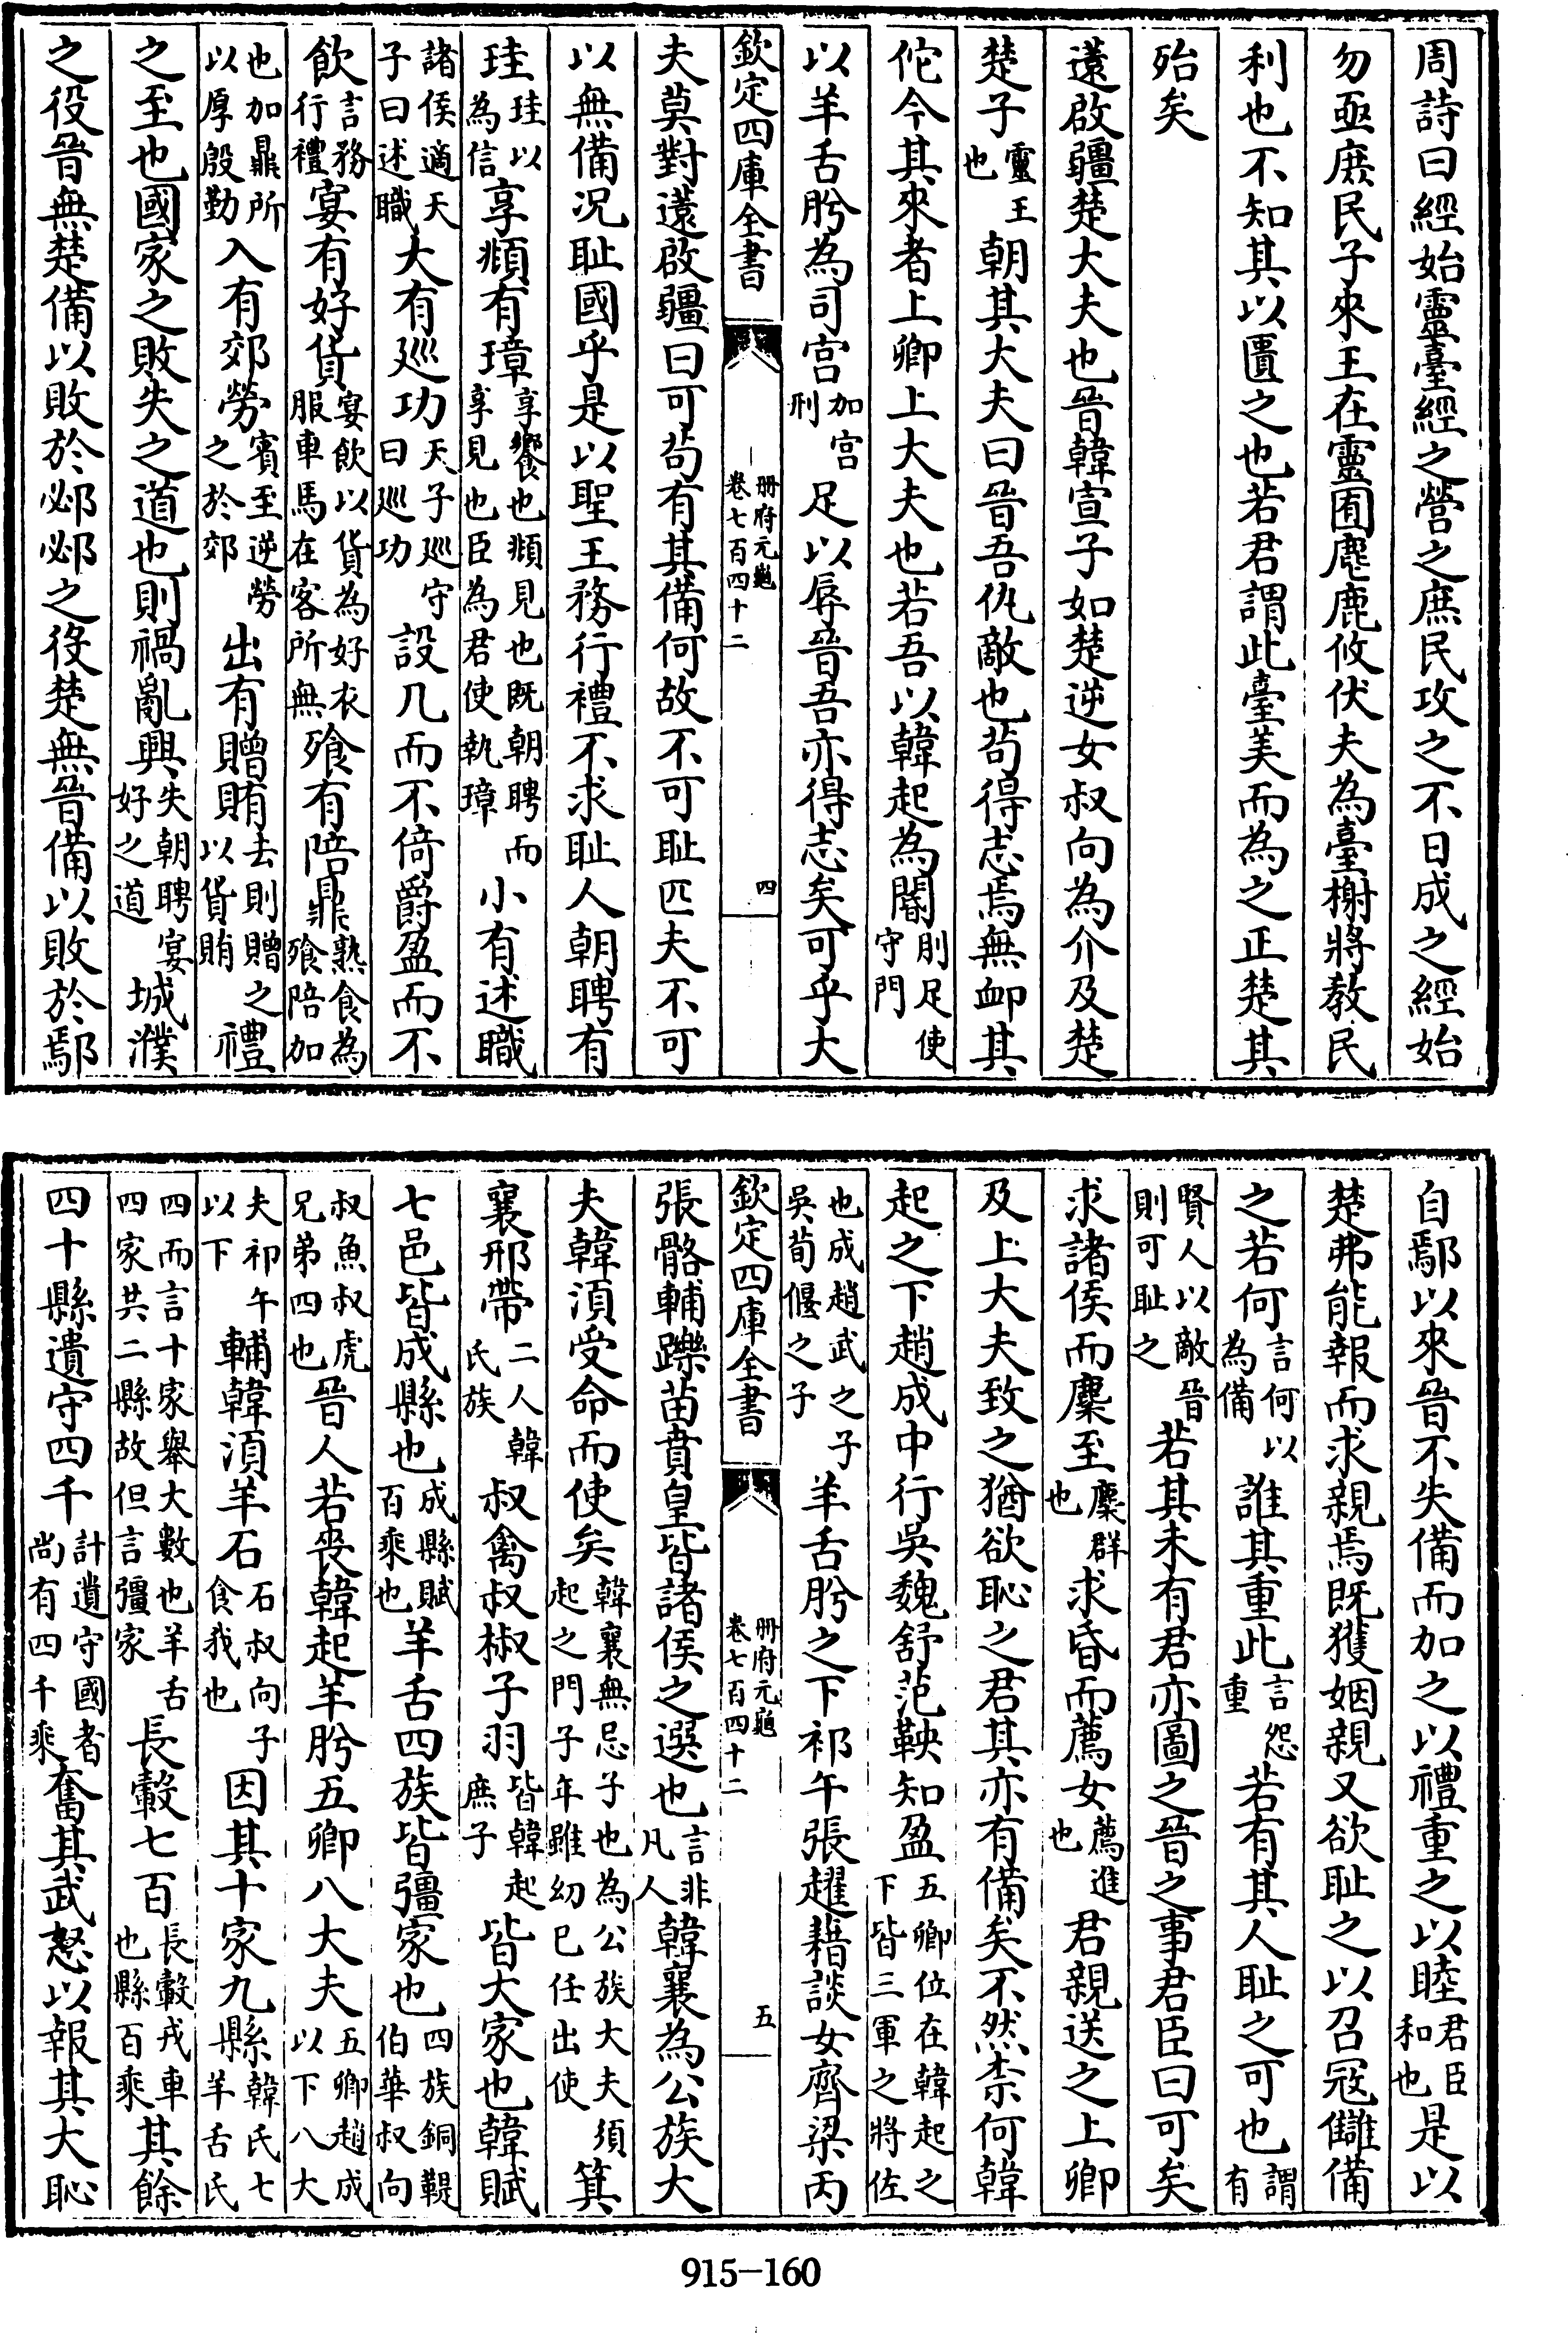 周詩曰經始靈臺經之營之庶民攻之不日成之經始
勿亟庶民子來王在靈囿麀鹿攸伏夫為臺榭將教民
利也不知其以匱之也若君謂此臺美而為之正楚其
殆矣
薳啟疆楚大夫也晉韓宣子如楚逆女叔向為介及楚
楚子靈王也朝其大夫曰晉吾仇敵也茍得志焉無卹其
佗今其來者上卿上大夫也若吾以韓起為閽刖足使守門
以羊舌肸為司宫加宫刑足以辱晉吾亦得志矣可乎大
欽定四庫全書 冊府元龜 卷七百四十二 四
夫莫對薳啟疆曰可茍有其備何故不可耻匹夫不可
以無備况耻國乎是以聖王務行禮不求耻人朝聘有
珪珪以為信享頫有璋享饗也頫見也既朝聘而享見也臣為君使執璋小有述職
諸侯適天子曰述職大有廵功天子廵守曰廵功設几而不倚爵盈而不
飲言務行禮宴有好貨宴飲以貨為好衣服車馬在客所無飱有陪鼎熟食為飱陪加
也加鼎所以厚殷勤入有郊勞賓至逆勞之於郊出有贈賄去則贈之以貨賄禮
之至也國家之敗失之道也則禍亂興失朝聘宴好之道城濮
之役晉無楚備以敗於邲邲之役楚無晉備以敗於鄢
自鄢以來晉不失備而加之以禮重之以睦君臣和也是以
楚弗能報而求親焉既獲姻親又欲耻之以召冦讎備
之若何言何以為備誰其重此言怨重若有其人耻之可也謂有
賢人以敵晉則可耻之若其未有君亦圖之晉之事君臣曰可矣
求諸侯而麇至麇群也求昏而薦女薦進也君親送之上卿
及上大夫致之猶欲恥之君其亦有備矣不然柰何韓
起之下趙成中行吳魏舒范鞅知盈五卿位在韓起之下皆三軍之將佐
也成趙武之子吳荀偃之子羊舌肸之下祁午張趯藉談女齊梁丙
欽定四庫全書 冊府元龜 卷七百四十二 五
張骼輔躒苗賁皇皆諸侯之選也言非凡人韓襄為公族大
夫韓湏受命而使矣韓襄無忌子也為公族大夫須起之門子年雖幼已任出使箕
襄邢帶二人韓氏族叔禽叔椒子羽皆韓起庶子皆大家也韓賦
七邑皆成縣也成縣賦百乘也羊舌四族皆彊家也四族銅鞮伯華叔向
叔魚叔虎兄弟四也晉人若喪韓起羊肸五卿八大夫五卿趙成以下八大
夫祁午以下輔韓湏羊石石叔向子食我也因其十家九縣韓氏七羊舌氏
四而言十家舉大數也羊舌四家共二縣故但言彊家長轂七百長轂戎車也縣百乘其餘
四十縣遺守四千計遺守國者尚有四千乘奮其武怒以報其大恥
915-160